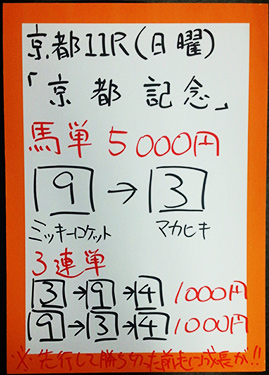 京都11R(日曜)
「京都記念」
馬単 5000円
9→3
ミッキーロケット マカヒキ
3連単
3→9→4 1000円
9→3→4 1000円
※先行して勝ち切った前走に成長が!!